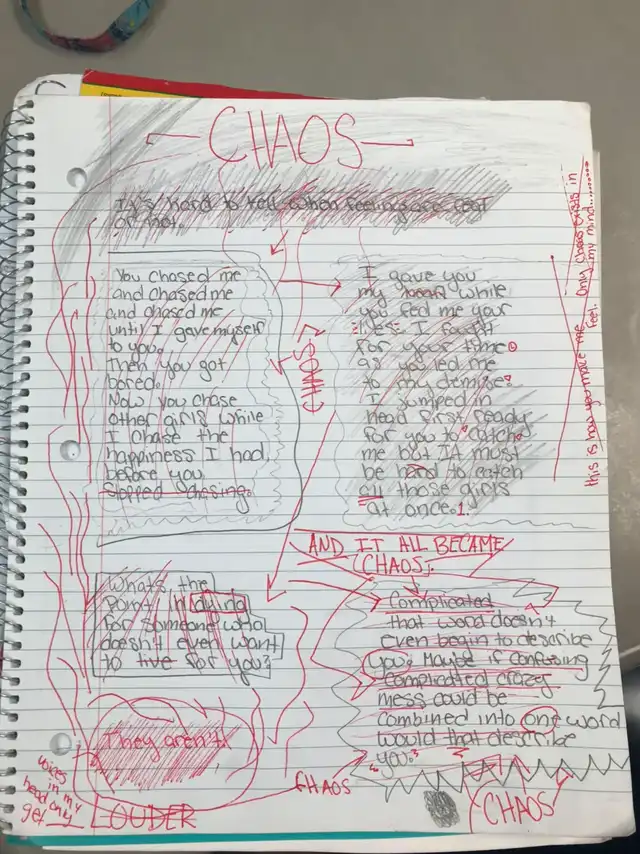 CHAOS
It's hard to tell when feelings are real
or not.
You chased me
and chased me
and chased me
until I gave myself
to you.
Then you got
bored.
Now you chase
other girls while
I chase the
happiness I had
before you
stopped chasing.
CHAOS
I gave you
my heart while
you fed me your
"lies." I fought
for your time
as you led me
to my demise.
I jumped in
head first ready
for you to "catch"
me but IT must
be hard to catch
all those girls
at once.
Only Chaos exists in
my mind.......
this is how you make me
feel.
AND IT ALL BECAME
CHAOS.
Whats the
point in dying
for someone who
doesn't even want
to live for you?
They aren't.
Complicated
that word doesn't
even begin to describe
you. Maybe if confusing
complicated crazy
mess could be
combined into one word
would that describe
"you."
CHAOS
CHAOS
voices
in my
head only
get
LOUDER